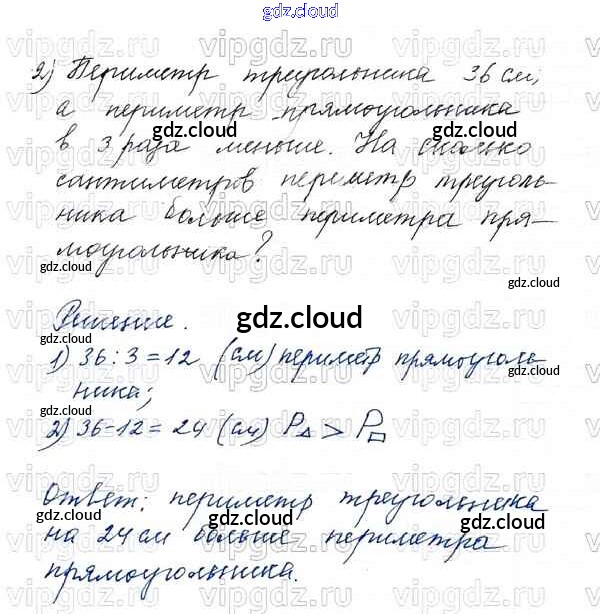 gdz.cloud
2) Периметр треугольника 36 см,
а периметр прямоугольника
в 3 раза меньше. На сколько
сантиметров периметр треуголь-
ника больше периметра пря-
моугольника?
Решение.
1) 36 : 3 = 12 (см) периметр прямоуголь-
ника;
2) 36 - 12 = 24 (см) P△ > P□
Ответ: периметр треугольника
на 24 см больше периметра
прямоугольника.